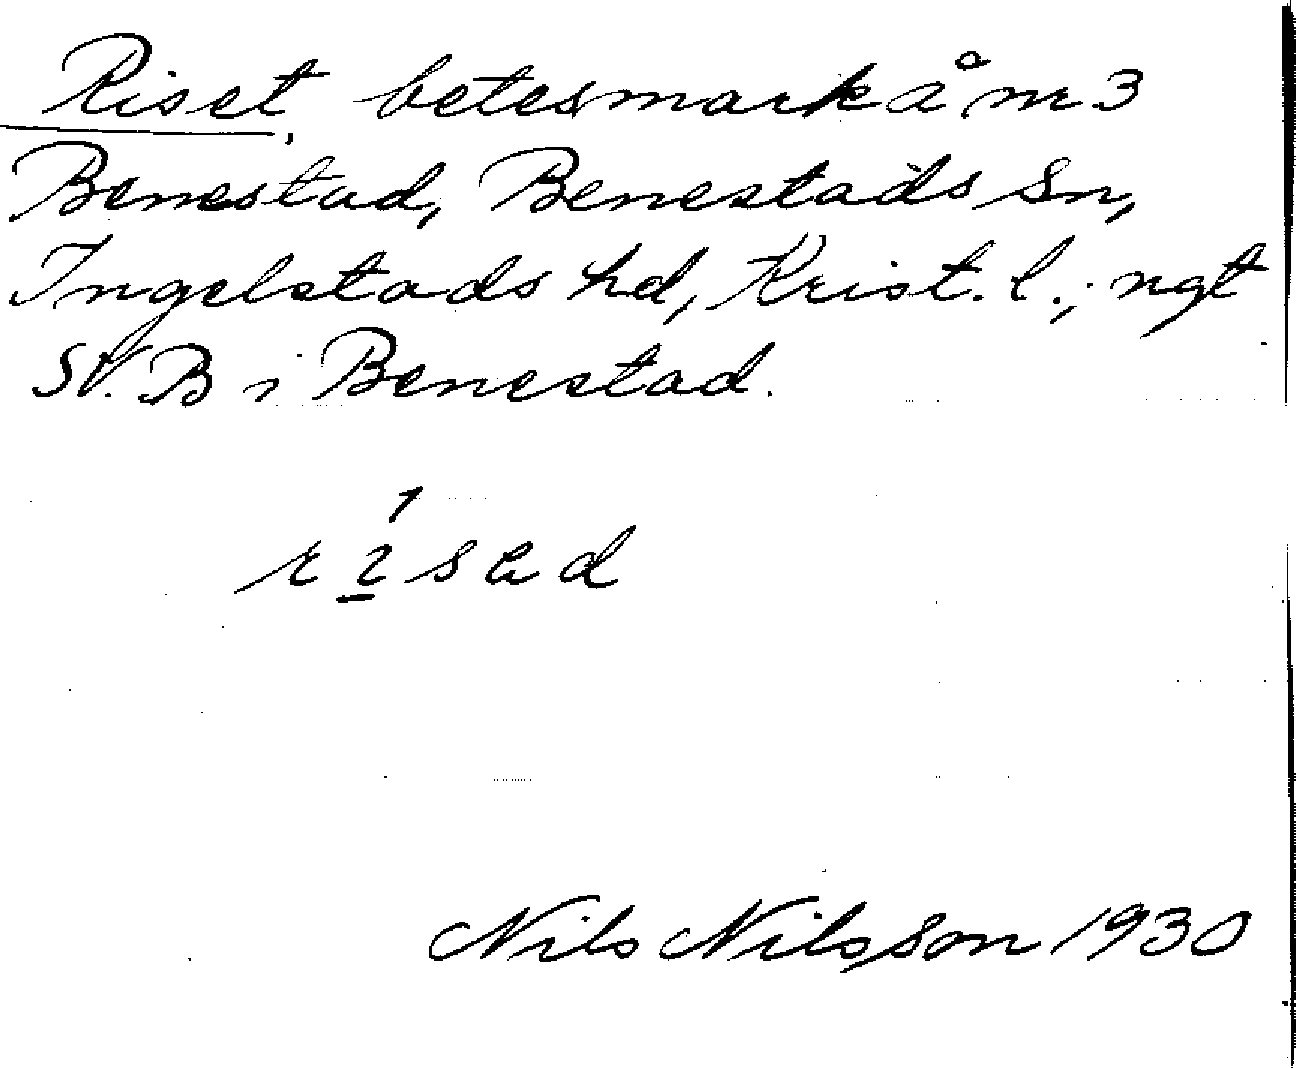 Riset, betesmark å nr 3
Benestad, Benestads Sn,
Ingelstads hd, Krist. l.; ngt
SV. B i Benestad.
Nils Nilsson 1930